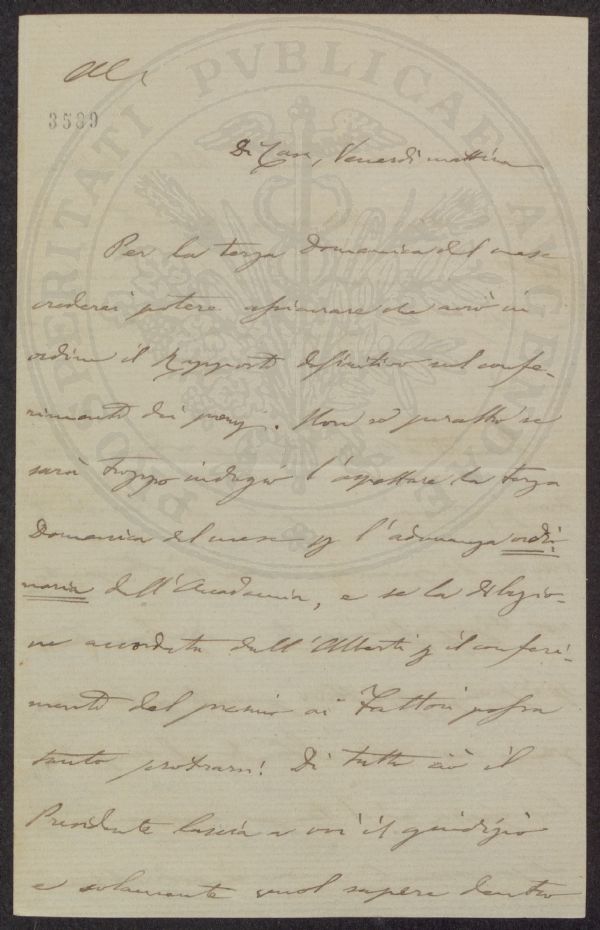 PROSPERITATI PVBLICAE AVGENDAE
3539
Di Casa, Venerdì mattina
Per la terza Domenica del mese
crederei potere assicurare che avrò in
ordine il Rapporto definitivo sul confe-
rimento dei premj. Non so peraltro se
sarà troppo indugio l'aspettare la terza
Domenica del mese p l'adunanza ordi-
naria dell'Accademia, e se la dilazio-
ne accordata dall'Alberti p il conferi-
mento del premio ai Fattori possa
tanto protrarsi! Di tutto ciò il
Presidente lascia a voi il giudizio
e solamente vuol sapere dentro